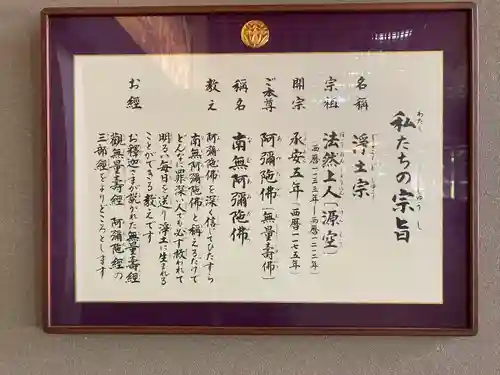 私たちの宗旨
名稱 浄土宗
宗祖 法然上人(源空)
(西暦一一三三年―西暦一二一二年)
開宗 承安五年(西暦一一七五年)
ご本尊 阿彌陀佛(無量壽佛)
稱名 南無阿彌陀佛
教え 阿彌陀佛を深く信じてひたすら
南無阿彌陀佛と稱えるだけで
どんなに罪深い人でも必ず救われて
明るい毎日を送り淨土に生まれる
ことができる教えです
お經 お釈迦さまが説かれた無量壽經
觀無量壽經 阿彌陀經の
三部經をよりどころとします